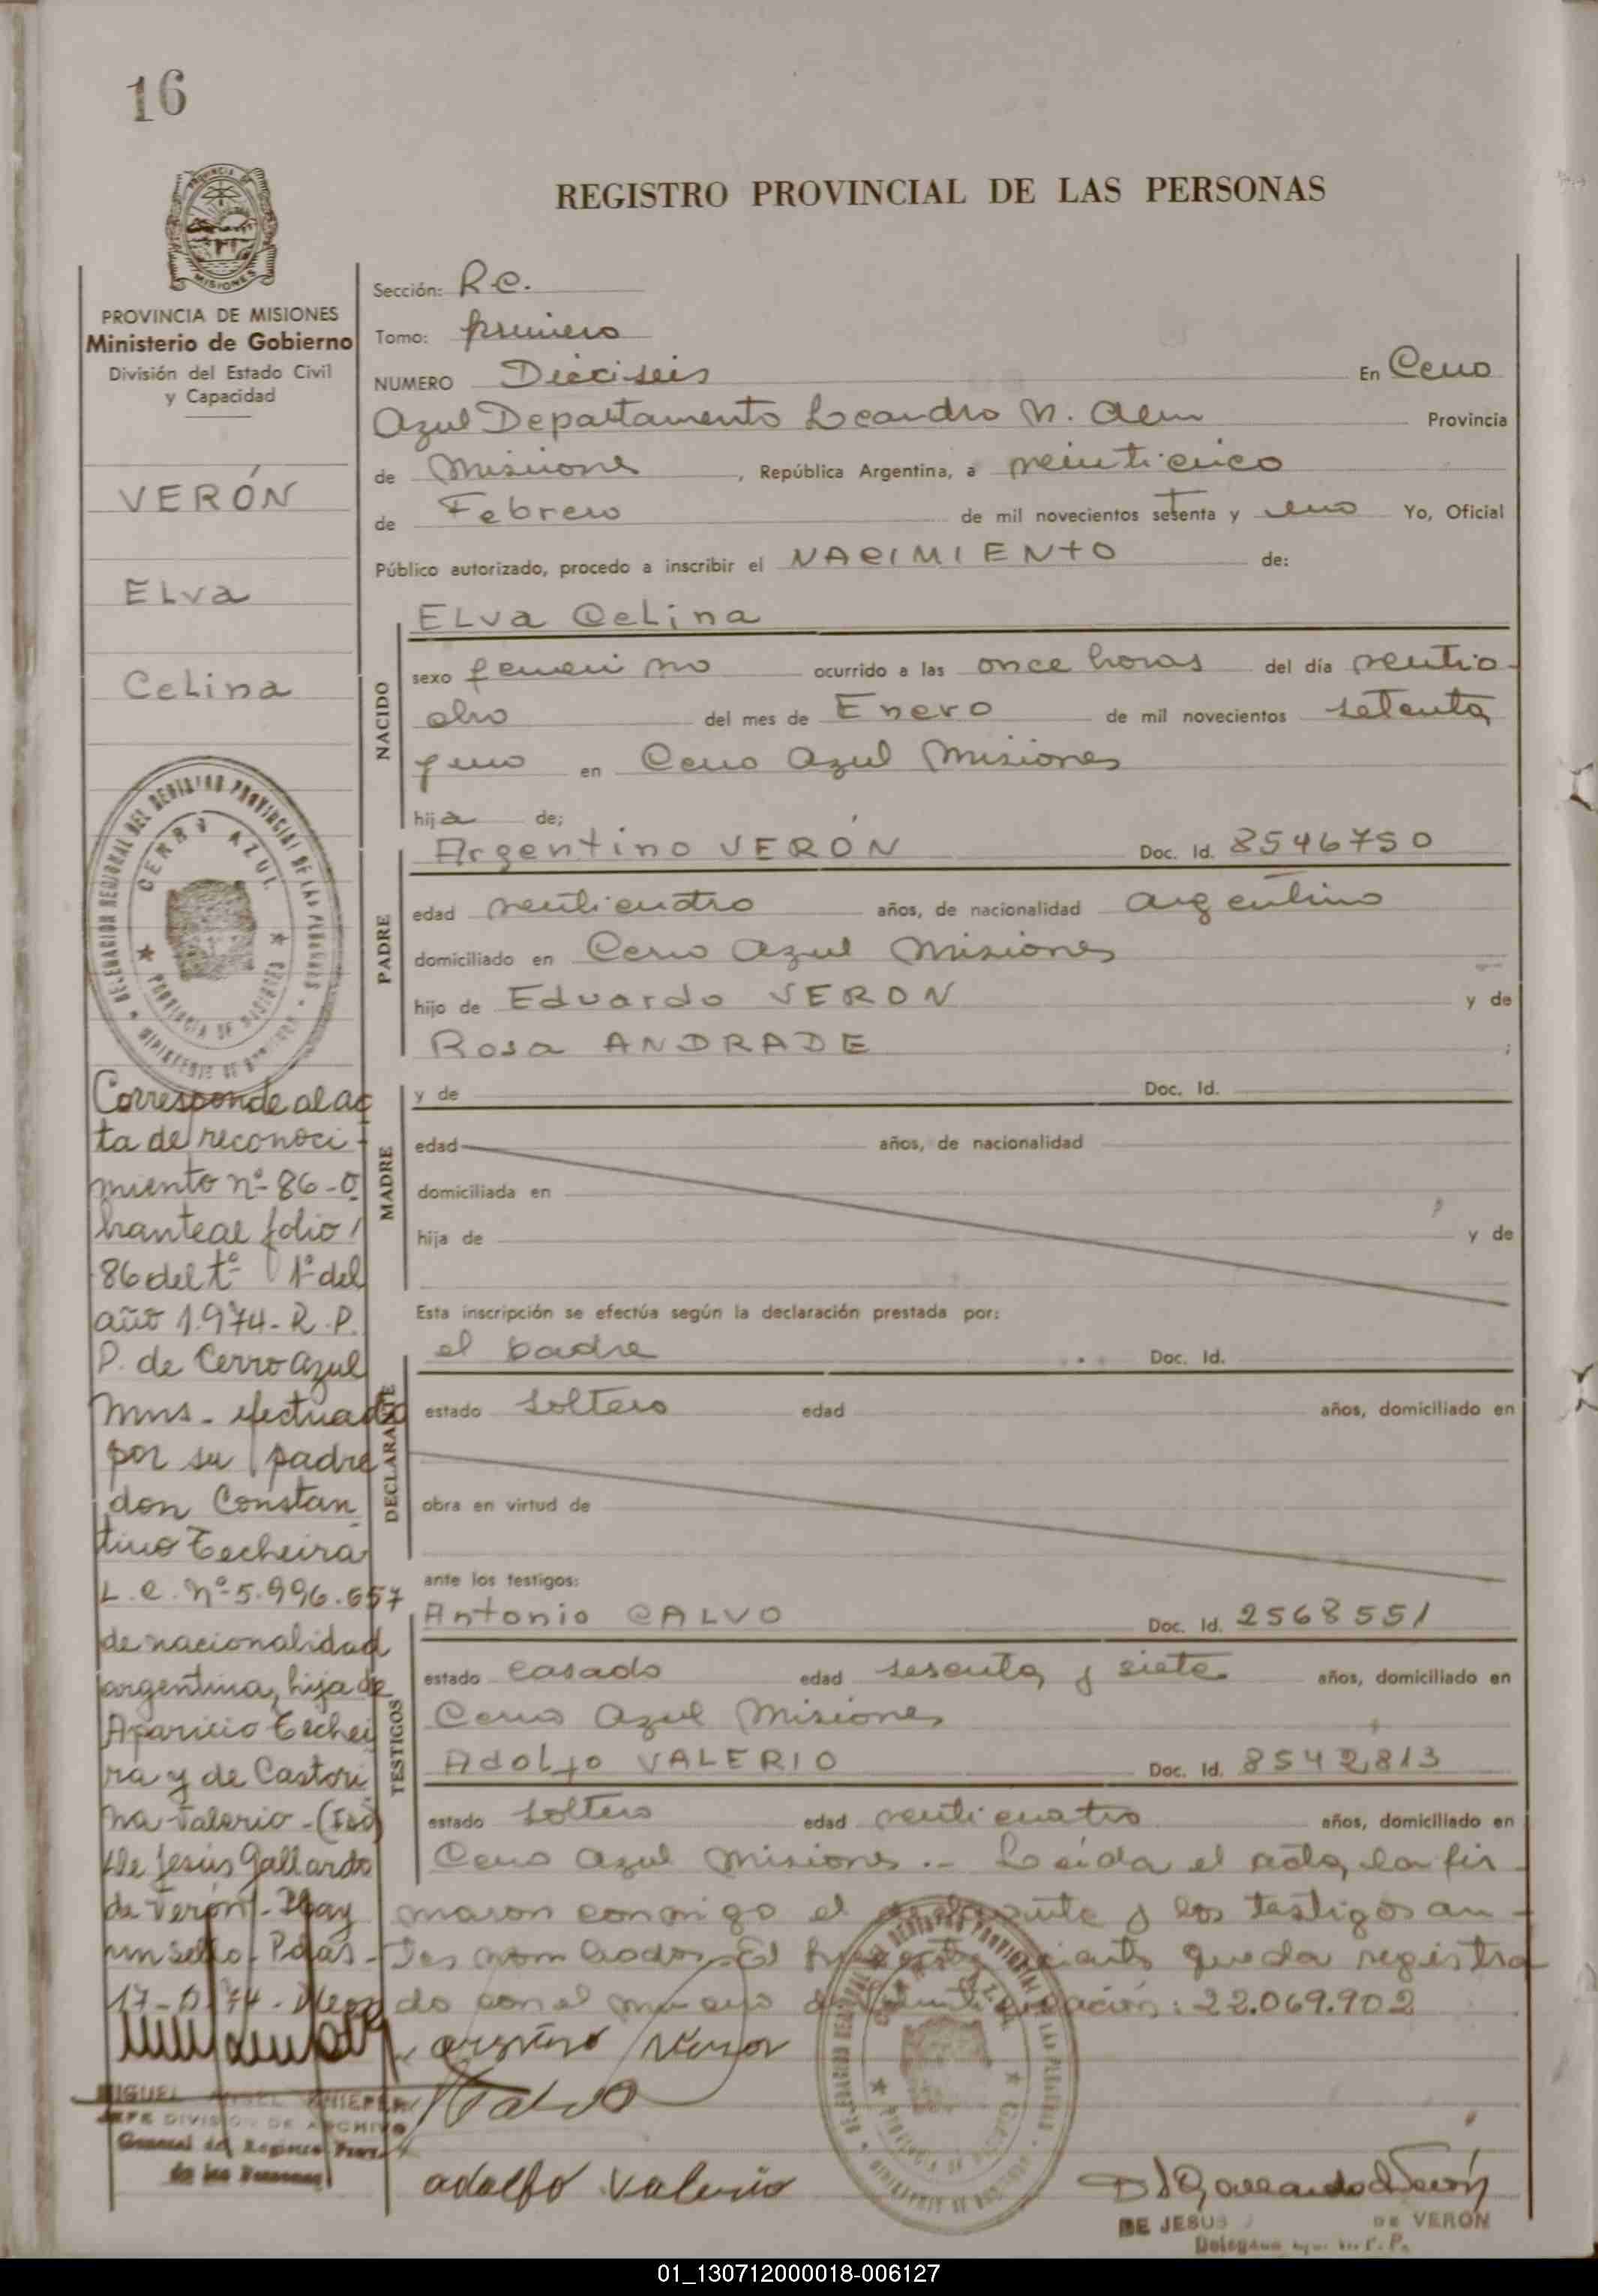 16
REGISTRO PROVINCIAL DE LAS PERSONAS
PROVINCIA DE MISIONES
Ministerio de Gobierno
División del Estado Civil
y Capacidad
VERÓN
ELva
Celina
Corresponde al ac
ta de reconoci-
miento nº 86-O
brante al folio
86 del tº 1º del
año 1.974- R. P.
P. de Cerro Azul
Mns - efectuado
por su padre
don Constan
tino Techeira
L. E. Nº 5.996.657
de nacionalidad
argentina, hijo de
Aparicio Techei
ra y de Castori
na Valerio - (Fdo)
De Jesús Gallardo
de Verón - Hay
un sello - Pdas -
Sección: R.C.
Tomo: primero
NUMERO Dieciseis En Cerro
Azul Departamento Leandro N. Alem Provincia
de Misiones, República Argentina, a veinticinco
de Febrero de mil novecientos setenta y uno Yo, Oficial
Público autorizado, procedo a inscribir el NACIMIENTO de:
NACIDO
ELva Celina
sexo femenino ocurrido a las once horas del día ventio-
cho del mes de Enero de mil novecientos setenta
y uno en Cerro Azul Misiones
hija de;
PADRE
Argentino VERÓN Doc. Id. 8546750
edad venticuatro años, de nacionalidad argentino
domiciliado en Cerro Azul Misiones
hijo de Eduardo VERON y de
Rosa ANDRADE ;
MADRE
y de Doc. Id.
edad años, de nacionalidad
domiciliada en
hija de y de
Esta inscripción se efectúa según la declaración prestada por:
DECLARANTE
el padre Doc. Id.
estado soltero edad años, domiciliado en
obra en virtud de
ante los testigos:
TESTIGOS
Antonio CALVO Doc. Id. 2568551
estado casado edad sesenta y siete años, domiciliado en
Cerro Azul Misiones
Adolfo VALERIO Doc. Id. 8542813
estado soltero edad venticuatro años, domiciliado en
Cerro Azul Misiones.- Leída el acta, la fir-
maron conmigo el y los testigos an-
tes nombrados. El queda registra
do con el numero de : 22.069.902
Adolfo Valerio
DE JESUS DE VERON
CERRO AZUL
PROVINCIA DE MISIONES
DELEGACION REGIONAL DEL REGISTRO PROVINCIAL DE LAS PERSONAS
MIGUEL
JEFE DIVISION DE ARCHIVO
General del Registro Prov.
de las Personas
01_130712000018-006127